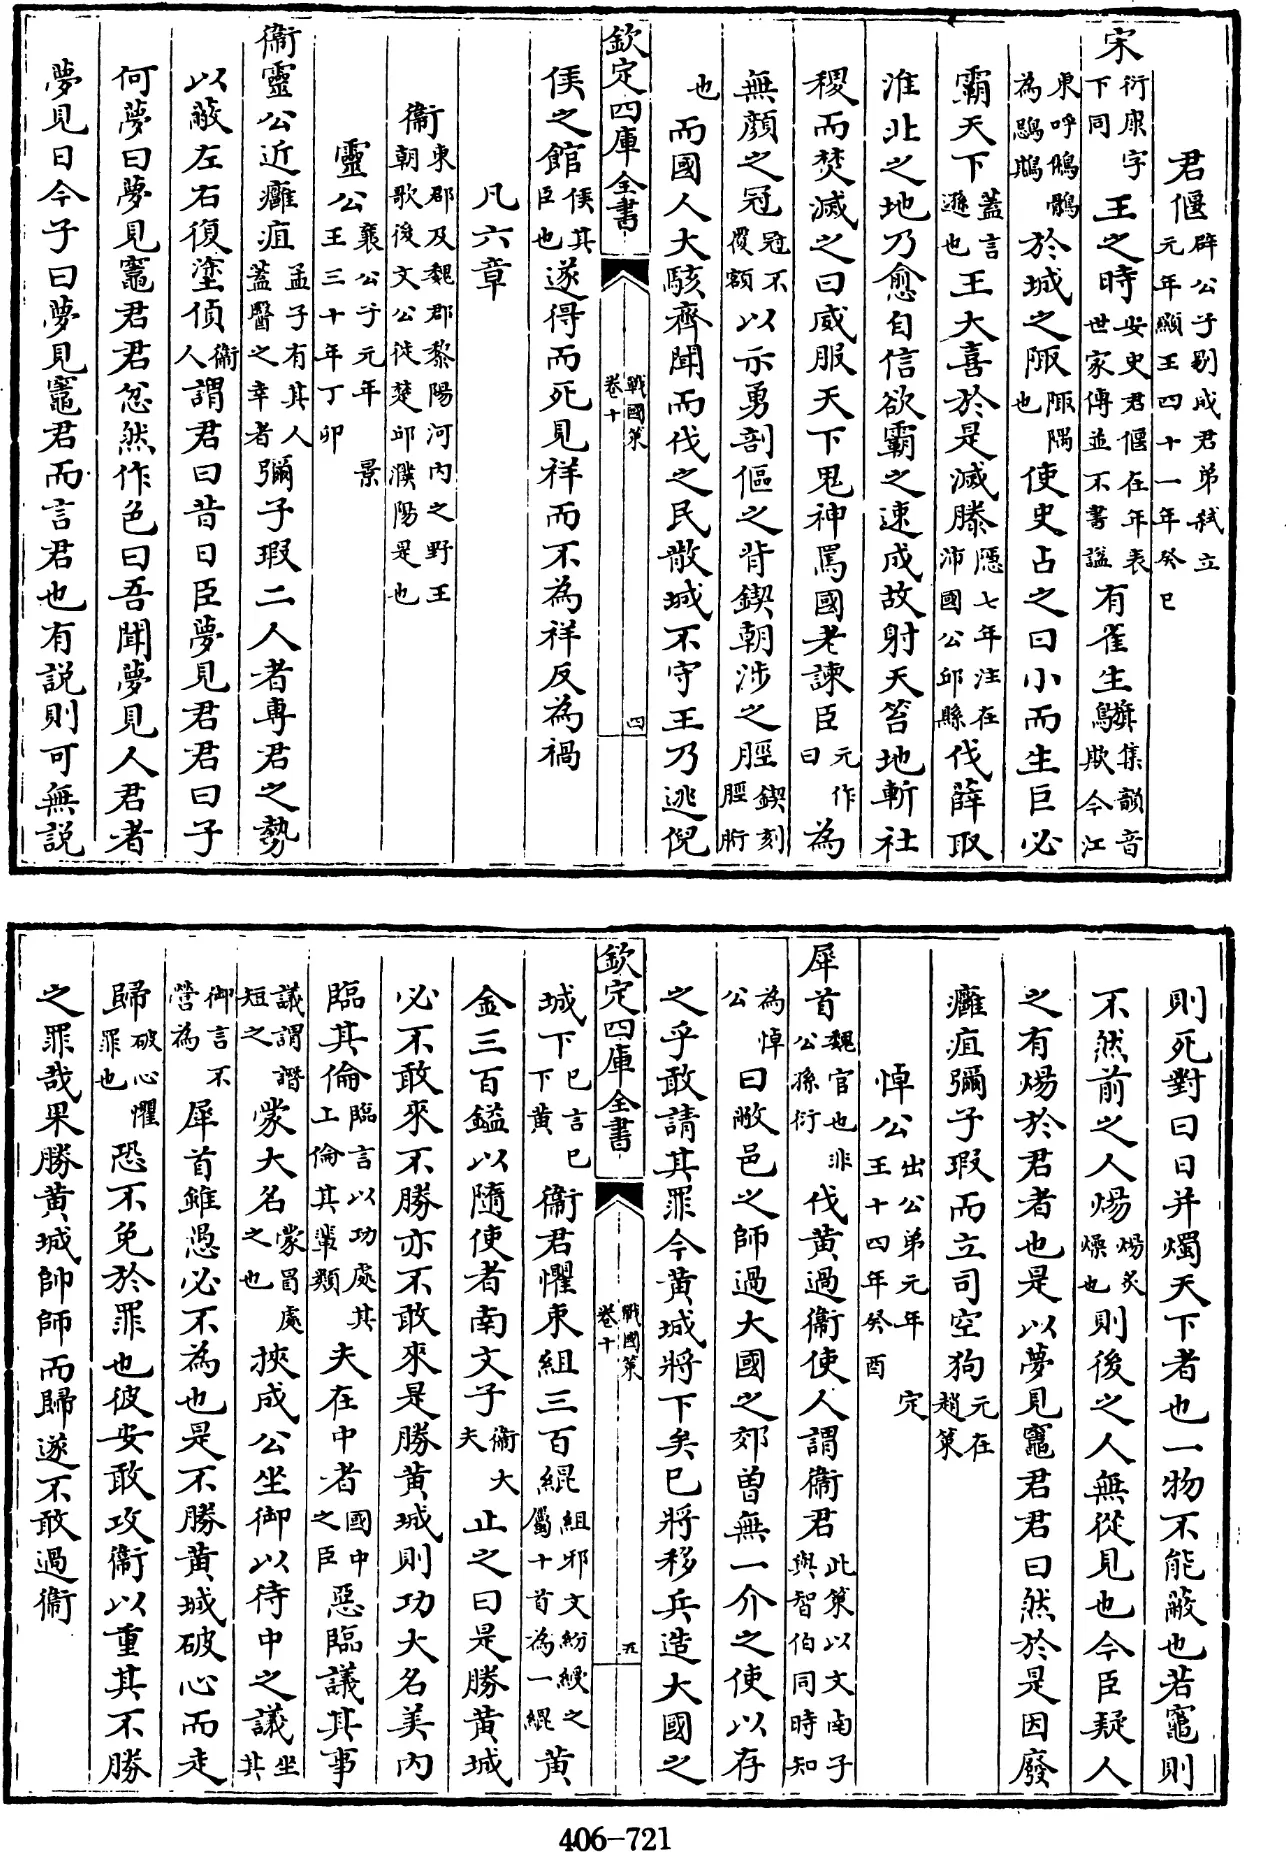 君偃辟公子剔成君弟弑立元年顯王四十一年癸巳
宋衍康字下同王之時安史君偃在年表世家傳並不書諡有雀生集韻音欺今江
東呼鵂鶹為於城之陬陬隅也使史占之曰小而生巨必
霸天下蓋言遜也王大喜於是滅滕隱七年注在沛國公邱縣伐薛取
淮北之地乃愈自信欲霸之速成故射天笞地斬社
稷而焚滅之曰威服天下鬼神罵國老諫臣元作曰為
無顔之冠冠不覆額以示勇剖傴之背鍥朝涉之脛鍥刻脛胻
也而國人大駭齊聞而伐之民散城不守王乃逃倪
欽定四庫全書 戰國策 卷十 四
侯之館侯其臣也遂得而死見祥而不為祥反為禍
凡六章
衞東郡及魏郡黎陽河内之野王朝歌後文公徙楚邱濮陽是也
靈公襄公子元年景王三十年丁卯
衞靈公近癰疽孟子有其人蓋醫之幸者彌子瑕二人者專君之勢
以蔽左右復塗偵衞人謂君曰昔日臣夢見君君曰子
何夢曰夢見竈君君忿然作色曰吾聞夢見人君者
夢見日今子曰夢見竈君而言君也有説則可無説
則死對曰日并燭天下者也一物不能蔽也若竈則
不然前之人煬煬炙燥也則後之人無從見也今臣疑人
之有煬於君者也是以夢見竈君君曰然於是因廢
癰疽彌子瑕而立司空狗元在趙策
悼公出公弟元年定王十四年癸酉
犀首魏官也非公孫衍伐黄過衞使人謂衞君此策以文南子與智伯同時知
為悼公曰敝邑之師過大國之郊曾無一介之使以存
之乎敢請其罪今黄城將下矣已將移兵造大國之
欽定四庫全書 戰國策 卷十 五
城下已言已下黄衞君懼束組三百緄組邪文紛綬之屬十首為一緄黄
金三百鎰以隨使者南文子衞大夫止之曰是勝黄城
必不敢來不勝亦不敢來是勝黄城則功大名美内
臨其倫臨言以功處其上倫其輩類夫在中者國中之臣惡臨議其事
議謂譖短之蒙大名蒙冒處之也挾成公坐御以待中之議坐其
御言不營為犀首雖愚必不為也是不勝黄城破心而走
歸破心懼罪也恐不免於罪也彼安敢攻衞以重其不勝
之罪哉果勝黄城帥師而歸遂不敢過衞
406-721